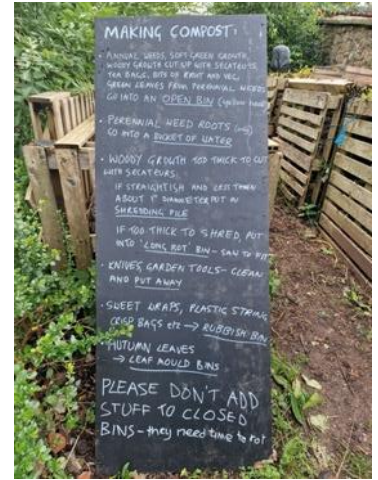 MAKING COMPOST:
• ANNUAL WEEDS, SOFT GREEN GROWTH,
WOODY GROWTH CUT UP WITH SECATEURS,
TEA BAGS, BITS OF FRUIT AND VEG,
GREEN LEAVES FROM PERENNIAL WEEDS
GO INTO AN OPEN BIN
• PERENNIAL WEED ROOTS (only)
GO INTO A BUCKET OF WATER
• WOODY GROWTH TOO THICK TO CUT
WITH SECATEURS:
IF STRAIGHTISH AND LESS THAN
ABOUT 1" DIAMETER PUT ON
SHREDDING PILE
IF TOO THICK TO SHRED, PUT
INTO 'LONG ROT' BIN - SAW TO FIT
• KNIVES, GARDEN TOOLS - CLEAN
AND PUT AWAY
• SWEET WRAPS, PLASTIC STRING,
CRISP BAGS etc → RUBBISH BIN
• AUTUMN LEAVES
→ LEAF MOULD BINS
PLEASE DON'T ADD
STUFF TO CLOSED
BINS - they need time to rot